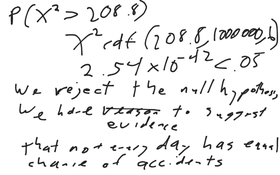 P(X² > 208.8)
X² cdf (208.8, 1000000, 6)
2.54 x 10⁻⁴² < .05
We reject the null hypothesis,
We have reason to suggest
evidence
that not every day has equal
chance of accidents